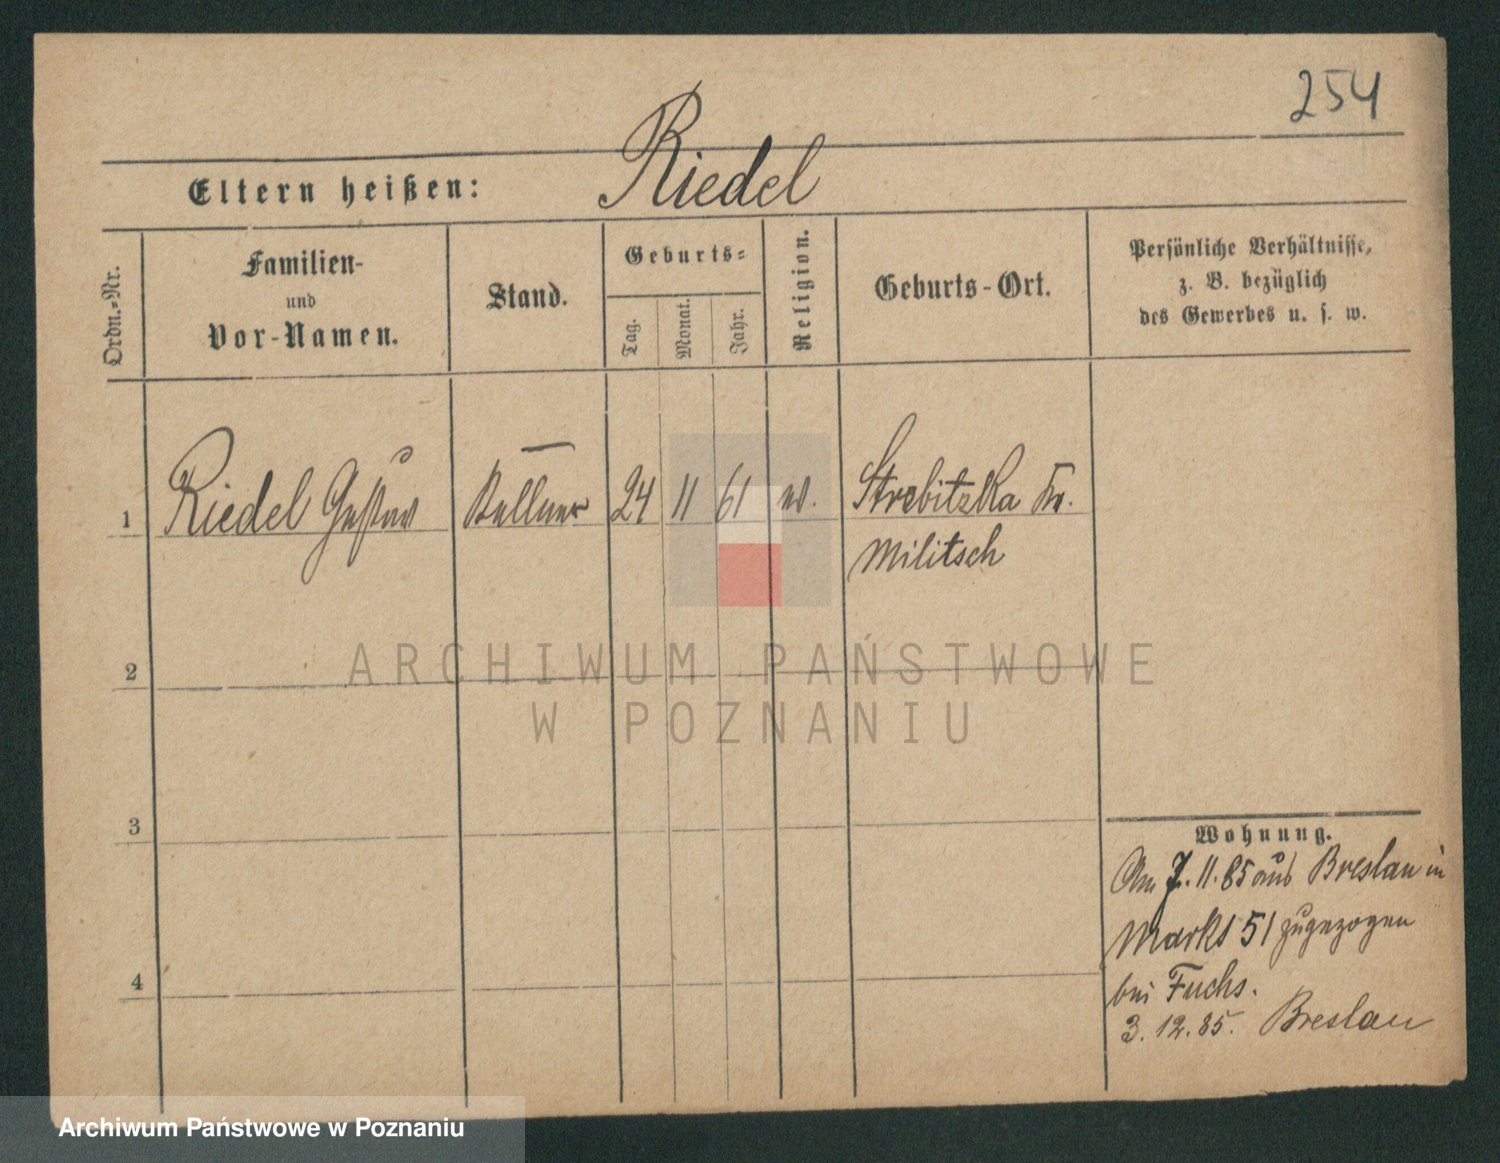 254
Eltern heißen: Riedel
Ordn.-Nr.
Familien-
und
Vor-Namen.
Stand.
Geburts-
Tag.
Monat.
Jahr.
Religion.
Geburts-Ort.
Persönliche Verhältnisse,
z. B. bezüglich
des Gewerbes u. s. w.
1 Riedel Gustav Kellner 24 11 61 ev. Strebitzka Kr.
Militsch
2
3
4
Wohnung.
Am 7. 11. 85 aus Breslau in
Markt 51 zugezogen
bei Fuchs.
3. 12. 85. Breslau
ARCHIWUM PAŃSTWOWE
W POZNANIU
Archiwum Państwowe w Poznaniu